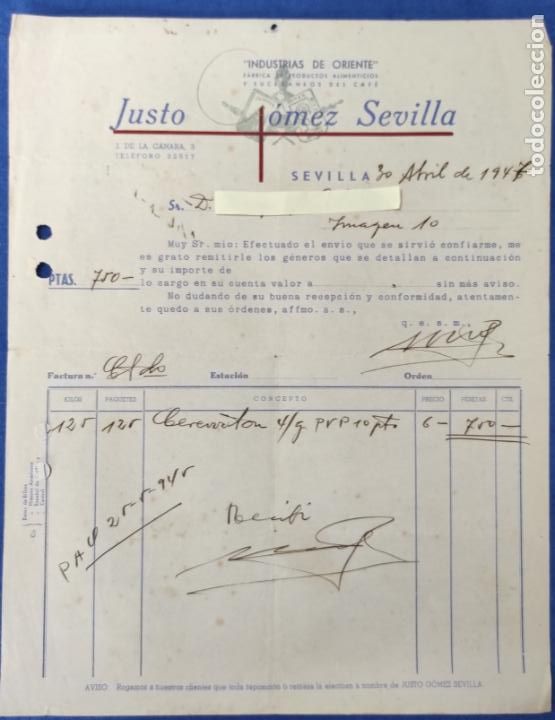 todocoleccion
"INDUSTRIAS DE ORIENTE"
FÁBRICA PRODUCTOS ALIMENTICIOS
Y SUCEDANEOS DEL CAFÉ
Justo Gómez Sevilla
J. DE LA CÁMARA, 3
TELÉFONO 32517
SEVILLA 30 Abril de 1947
Sr. D.
Imagen 10
Muy Sr. mio: Efectuado el envio que se sirvió confiarme, me
es grato remitirle los géneros que se detallan a continuación
y su importe de
PTAS. 750-
lo cargo en su cuenta valor a sin más aviso.
No dudando de su buena recepción y conformidad, atentamen-
te quedo a sus órdenes, affmo. s. s.,
q. e. s. m.,
Factura n.º Estación Orden
KILOS PAQUETES CONCEPTO PRECIO PESETAS CTS.
125 125 PVP 10 pts 6- 750-
Recibi
AVISO: Rogamos a nuestros clientes que toda reposición o remesa la efectúen a nombre de JUSTO GÓMEZ SEVILLA.